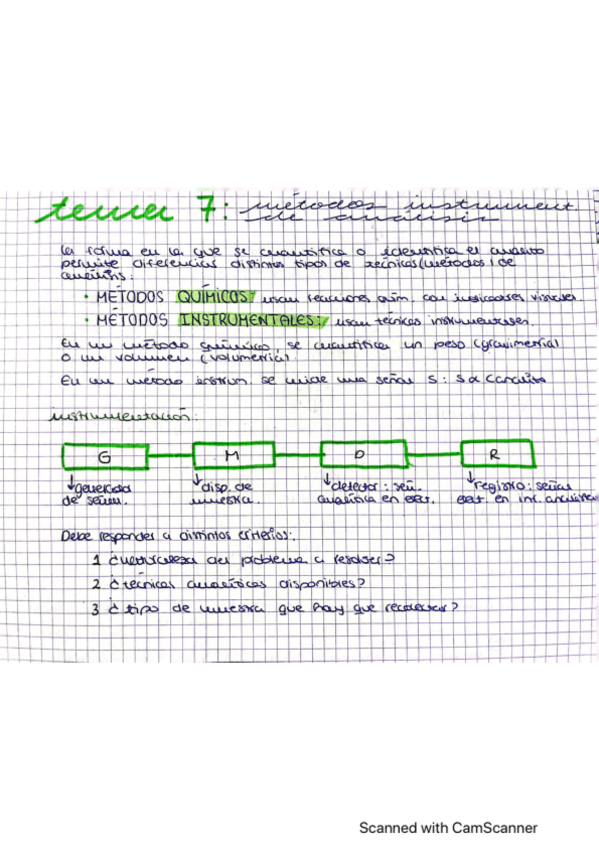 tema 7: métodos instrument.
de análisis
la forma en la que se cuantifica o identifica el analito
permite diferenciar distintos tipos de técnicas (métodos) de
análisis:
· MÉTODOS QUÍMICOS: usan reacciones quím. con indicadores visuales
· MÉTODOS INSTRUMENTALES: usan técnicas instrumentales.
En un método químico, se cuantifica un peso (gravimetría)
o un volumen (volumetría)
En un método instrum. se mide una señal S: S α Canalito
instrumentación:
G M D R
generador disp. de detector: señ. registro: señal
de señal. muestra. analítica en eléct. eléct. en inf. analítica
Debe responder a distintos criterios:
1 ¿naturaleza del problema a resolver?
2 ¿técnicas analíticas disponibles?
3 ¿tipo de muestra que hay que recolectar?
Scanned with CamScanner